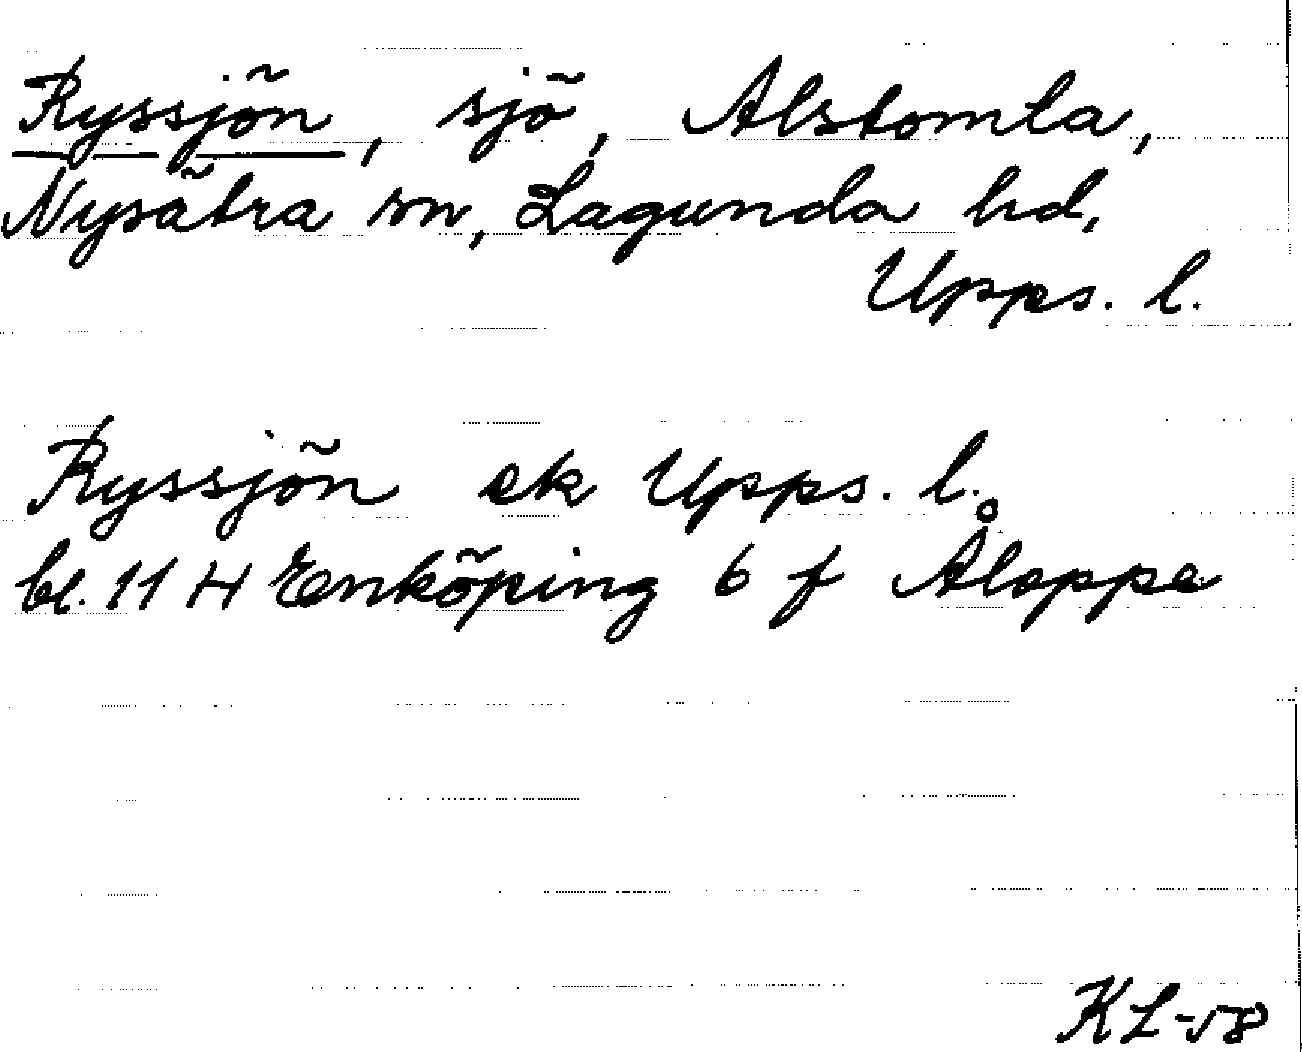 Ryssjön, sjö, Alstomta,
Nysätra sn, Lagunda hd,
Upps. l.
Ryssjön ek Upps. l.
bl. 11 H Enköping 6 f Åloppe
KL-58